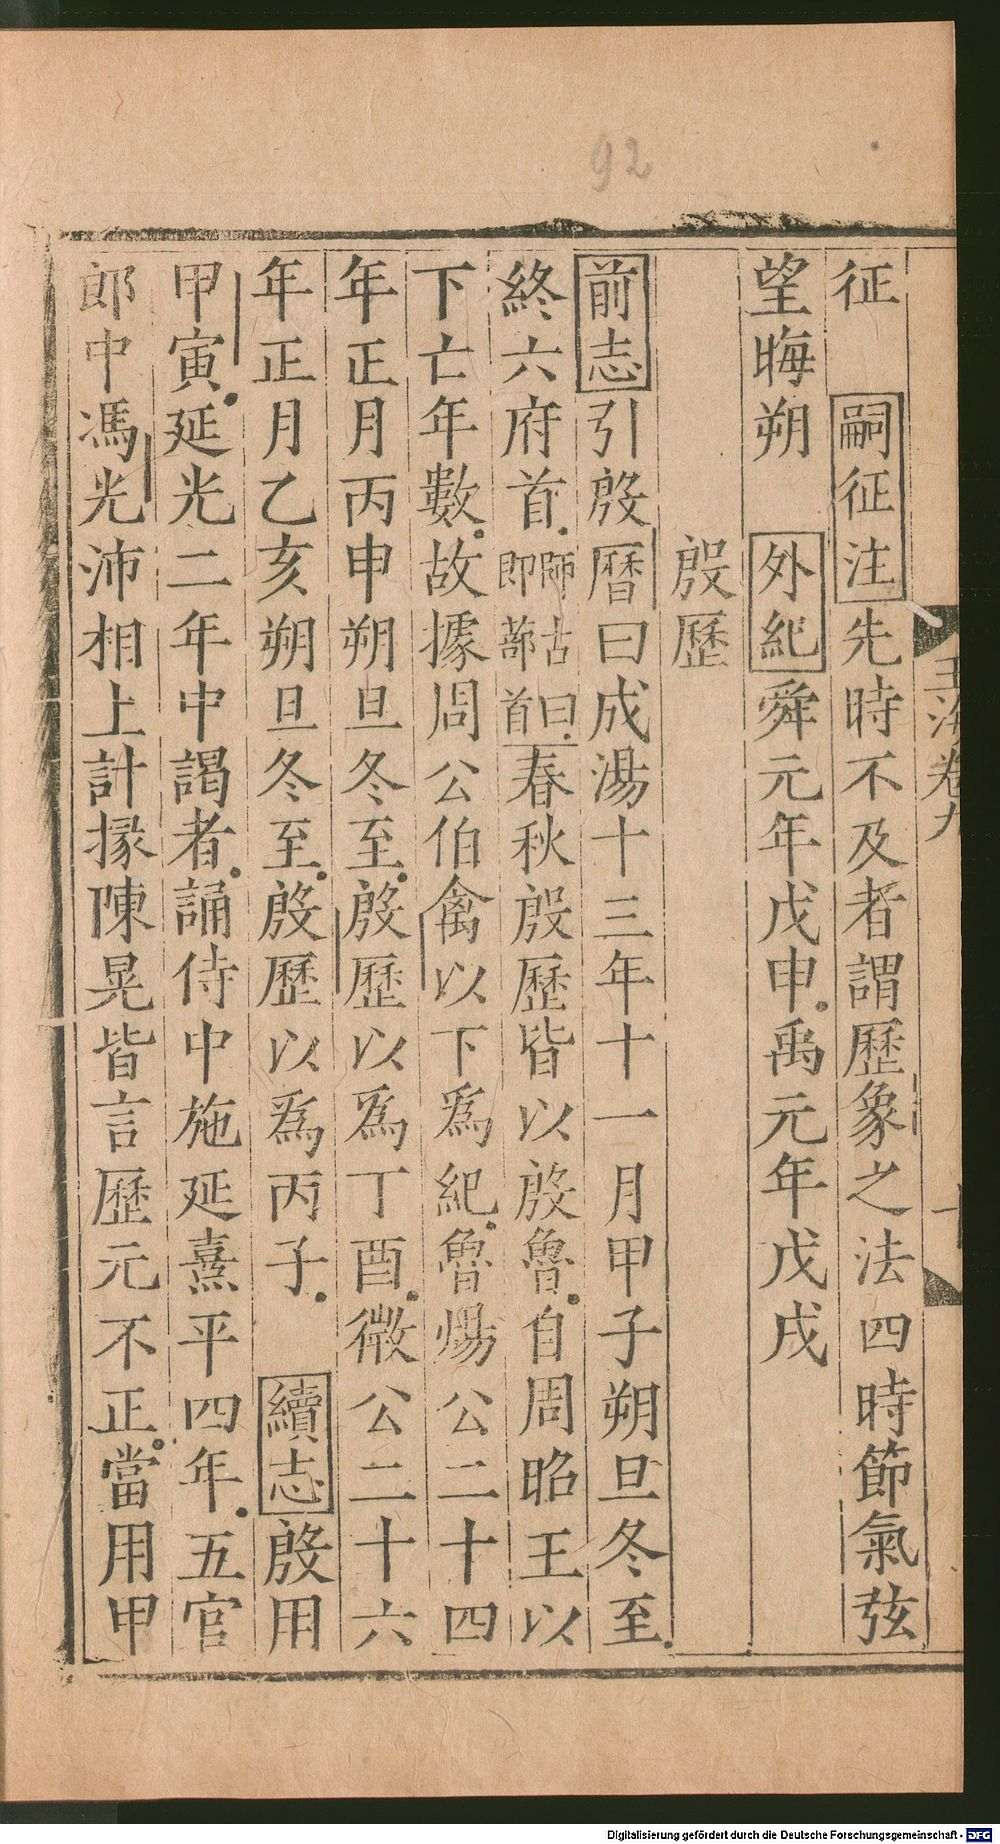 92
征　嗣征注先時不及者謂歷象之法四時節氣弦
望晦朔　外紀舜元年戊申禹元年戊戌
殷歷
前志引殷曆曰成湯十三年十一月甲子朔旦冬至
終六府首師古曰即蔀首春秋殷歷皆以殷魯自周昭王以
下亡年數故據周公伯禽以下爲紀魯煬公二十四
年正月丙申朔旦冬至殷歷以爲丁酉微公二十六
年正月乙亥朔旦冬至殷歷以爲丙子　續志殷用
甲寅延光二年中謁者誦侍中施延熹平四年五官
郎中馮光沛相上計掾陳晃皆言歷元不正當用甲
玉海卷九
Digitalisierung gefördert durch die Deutsche Forschungsgemeinschaft - DFG